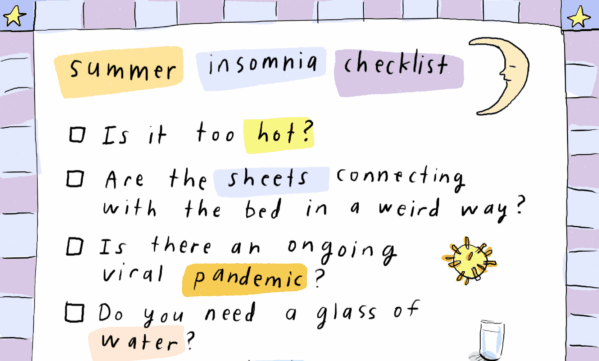 summer insomnia checklist
Is it too hot?
Are the sheets connecting
with the bed in a weird way?
Is there an ongoing
viral pandemic?
Do you need a glass of
water?